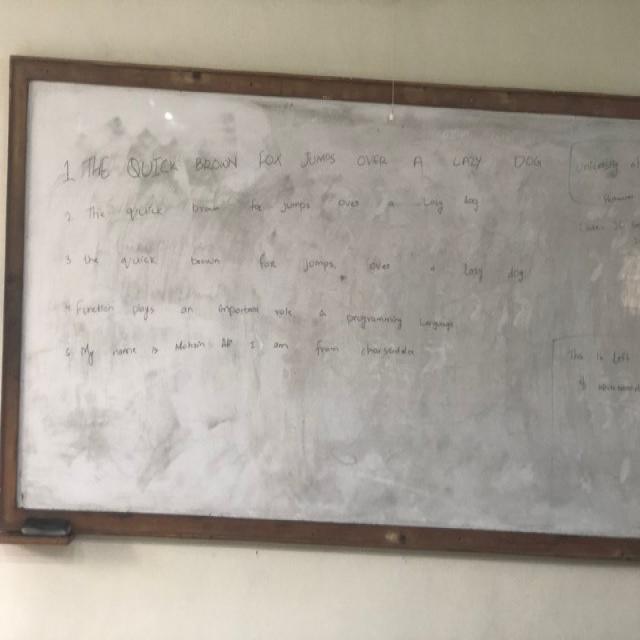 1 THE QUICK BROWN FOX JUMPS OVER A LAZY DOG
2. The quick brown fox jumps over a lazy dog
3 the quick brown fox jumps over a lazy dog
4. Function plays an important role a programming language
5 My name is Ali I am from charsadda
University of
This is Left
of